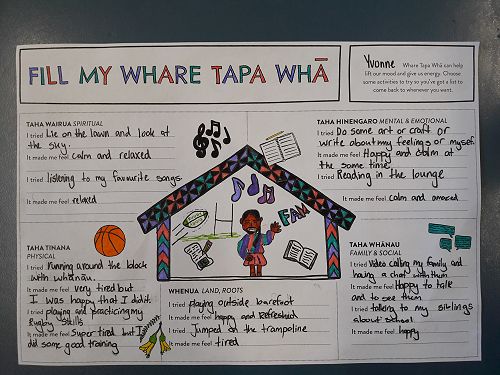 FILL MY WHARE TAPA WHĀ
Yvonne Whare Tapa Whā can help
lift our mood and give us energy. Choose
some activities to try so you've got a list to
come back to whenever you want.
TAHA WAIRUA SPIRITUAL
I tried Lie on the lawn and look at
the sky.
It made me feel calm and relaxed
I tried listening to my favourite songs
It made me feel relaxed
TAHA HINENGARO MENTAL & EMOTIONAL
I tried Do some art or craft or
write about my feelings or myself
It made me feel Happy and calm at
the same time.
I tried Reading in the lounge
It made me feel calm and amazed
FAM
TAHA TINANA
PHYSICAL
I tried running around the block
with whānau.
It made me feel very tired but
I was happy that I did it.
I tried playing and practicing my
Rugby skills
It made me feel Super tired but I
did some good training
WHENUA LAND, ROOTS
I tried playing outside barefoot
It made me feel happy and Refreshed
I tried Jumped on the trampoline
It made me feel tired
TAHA WHĀNAU
FAMILY & SOCIAL
I tried Video calling my family and
having a chat with them
It made me feel Happy to talk
and to see them
I tried talking to my siblings
about school
It made me feel happy